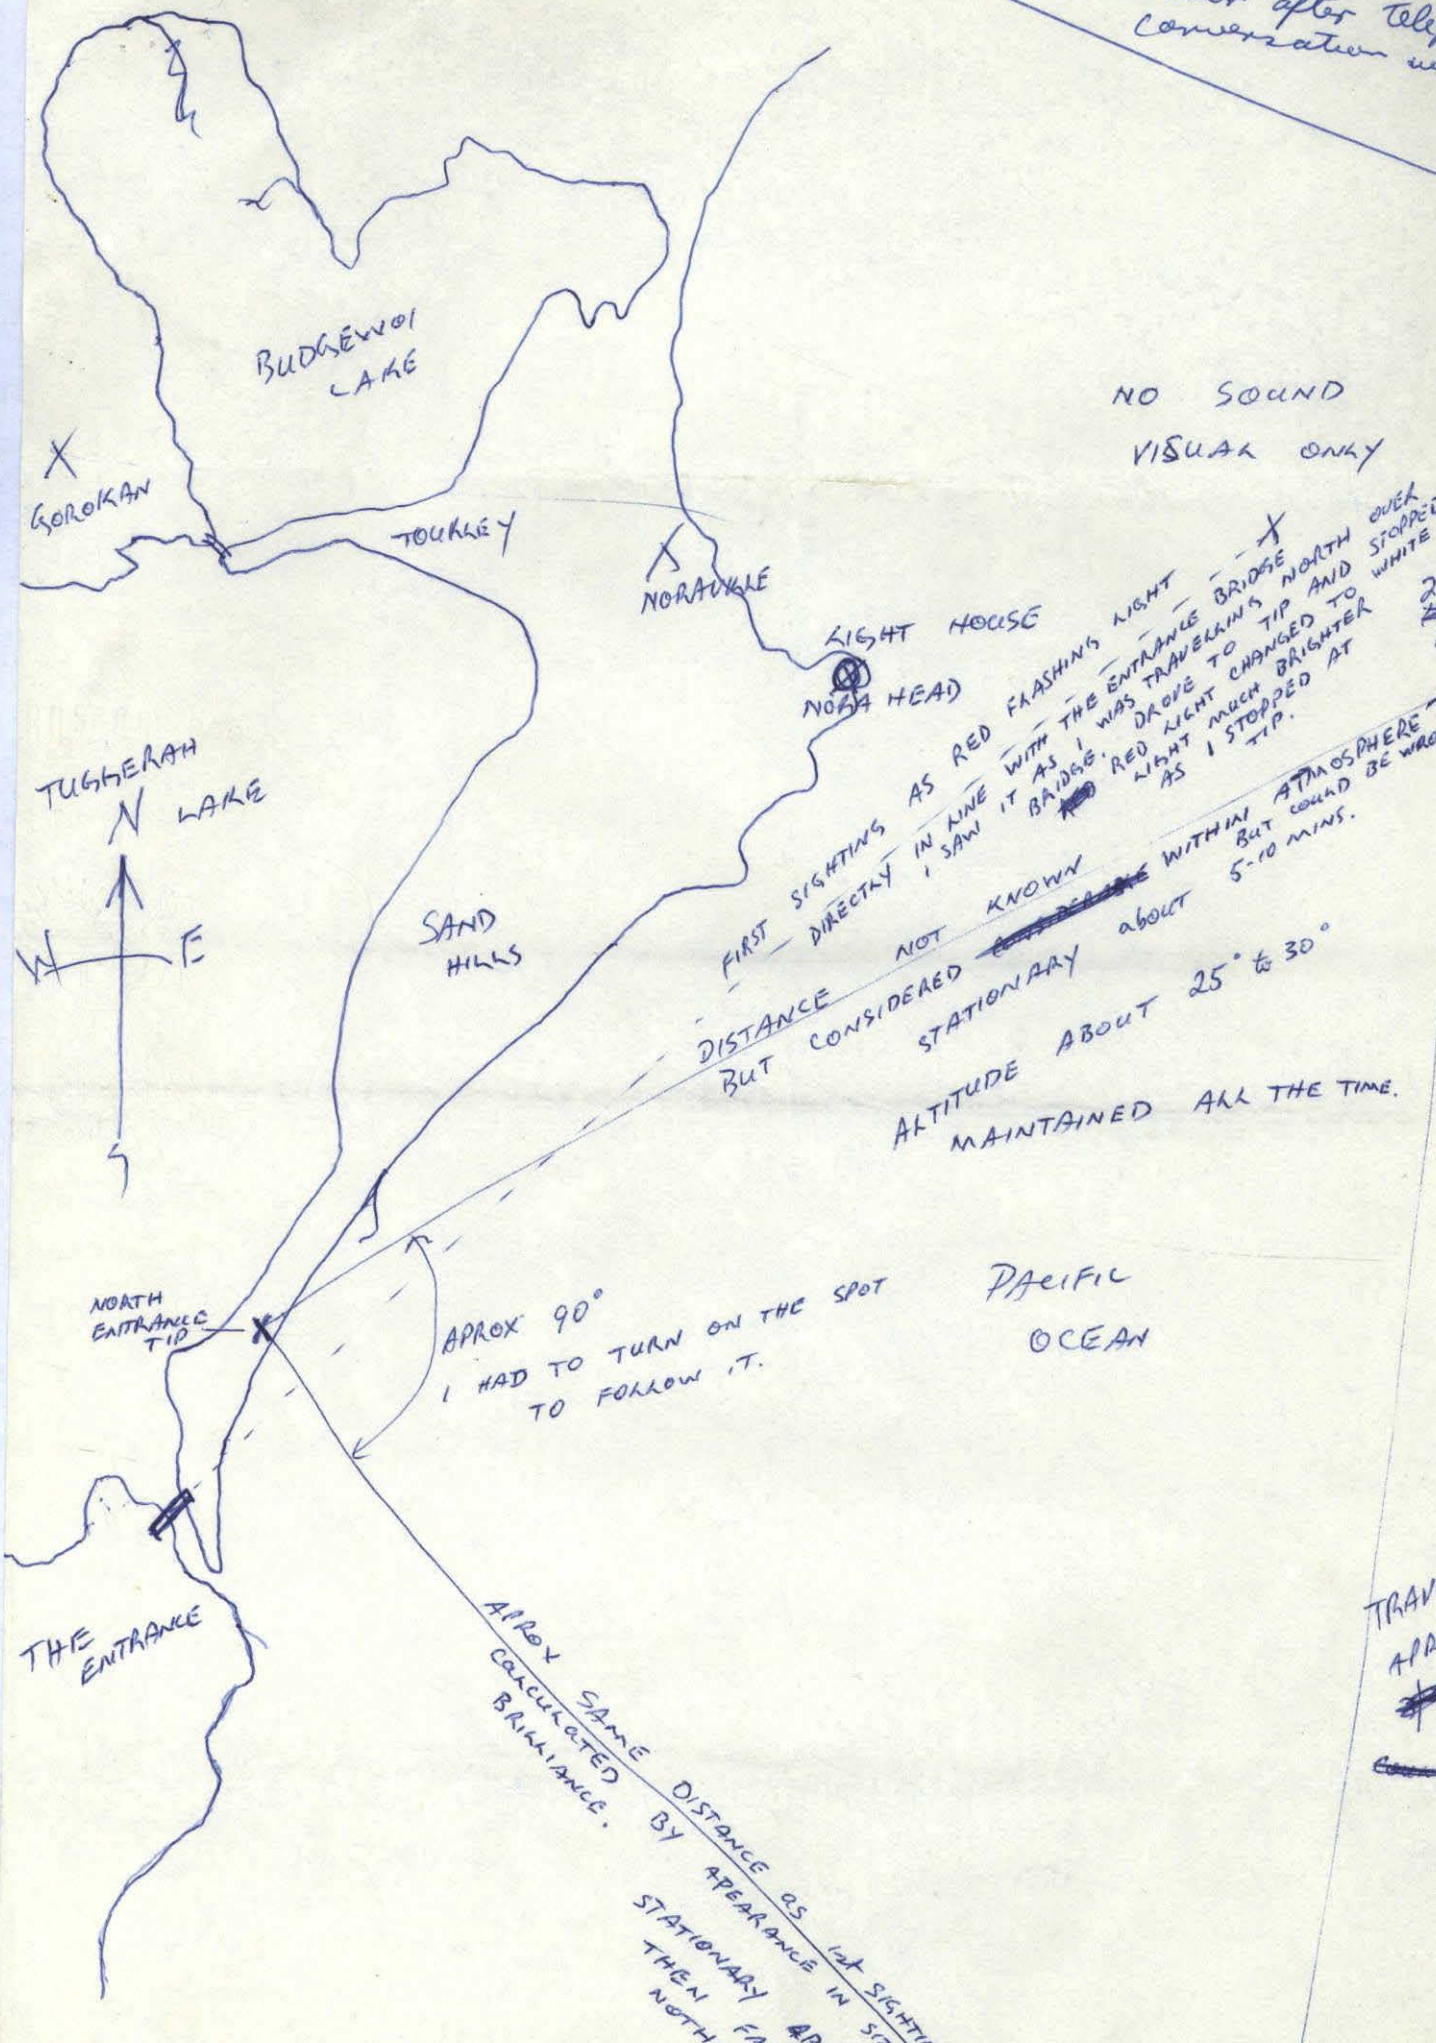 after
conversation
NO SOUND
VISUAL ONLY
BUDGEWOI
LAKE
X
GOROKAN
TOUKLEY
X
NORAVILLE
LIGHT HOUSE
NORA HEAD
TUGGERAH
LAKE
N
W E
S
SAND
HILLS
X
FIRST SIGHTING AS RED FLASHING LIGHT
DIRECTLY IN LINE WITH THE ENTRANCE BRIDGE
I SAW IT AS I WAS TRAVELLING NORTH OVER
BRIDGE. DROVE TO TIP AND STOPPED
RED LIGHT CHANGED TO WHITE
LIGHT MUCH BRIGHTER
AS I STOPPED AT
TIP.
DISTANCE NOT KNOWN
BUT CONSIDERED WITHIN ATMOSPHERE
BUT COULD BE
STATIONARY about 5-10 MINS.
ALTITUDE ABOUT 25° to 30°
MAINTAINED ALL THE TIME.
NORTH
ENTRANCE
TIP
X
APROX 90°
I HAD TO TURN ON THE SPOT
TO FOLLOW IT.
PACIFIC
OCEAN
THE
ENTRANCE
APROX SAME DISTANCE as 1st
CALCULATED BY APEARANCE IN
BRILLIANCE.
STATIONARY
THEN